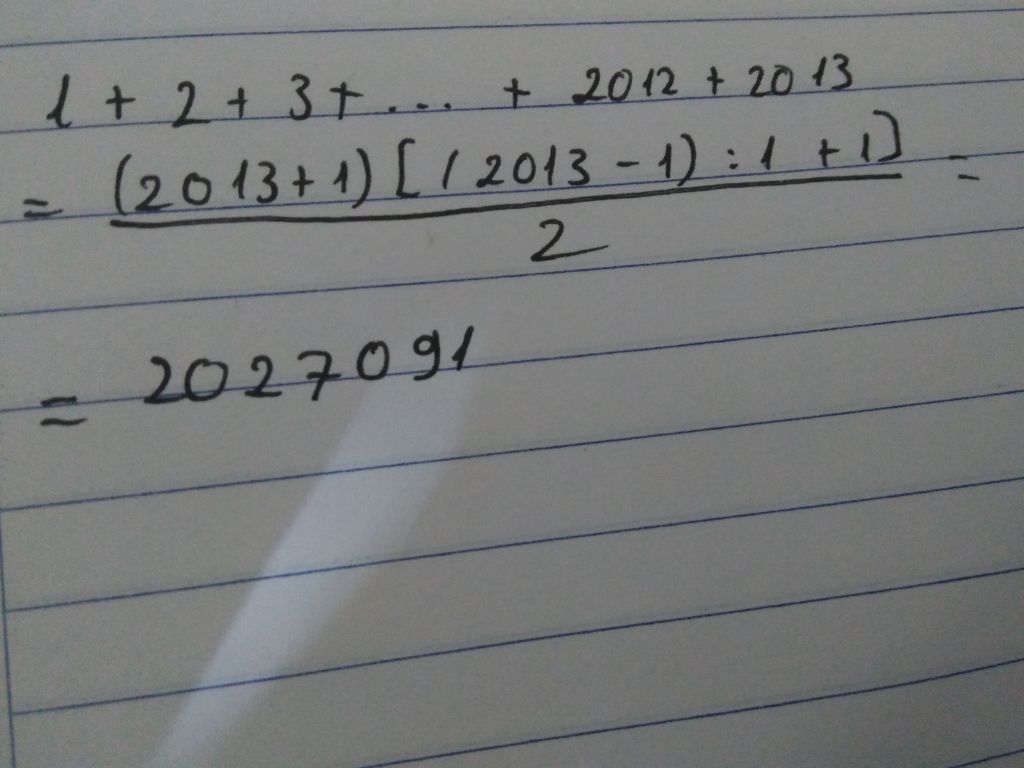 1 + 2 + 3 + ... + 2012 + 2013
= (2013+1) [(2013 - 1) : 1 + 1] =
2
= 2027091